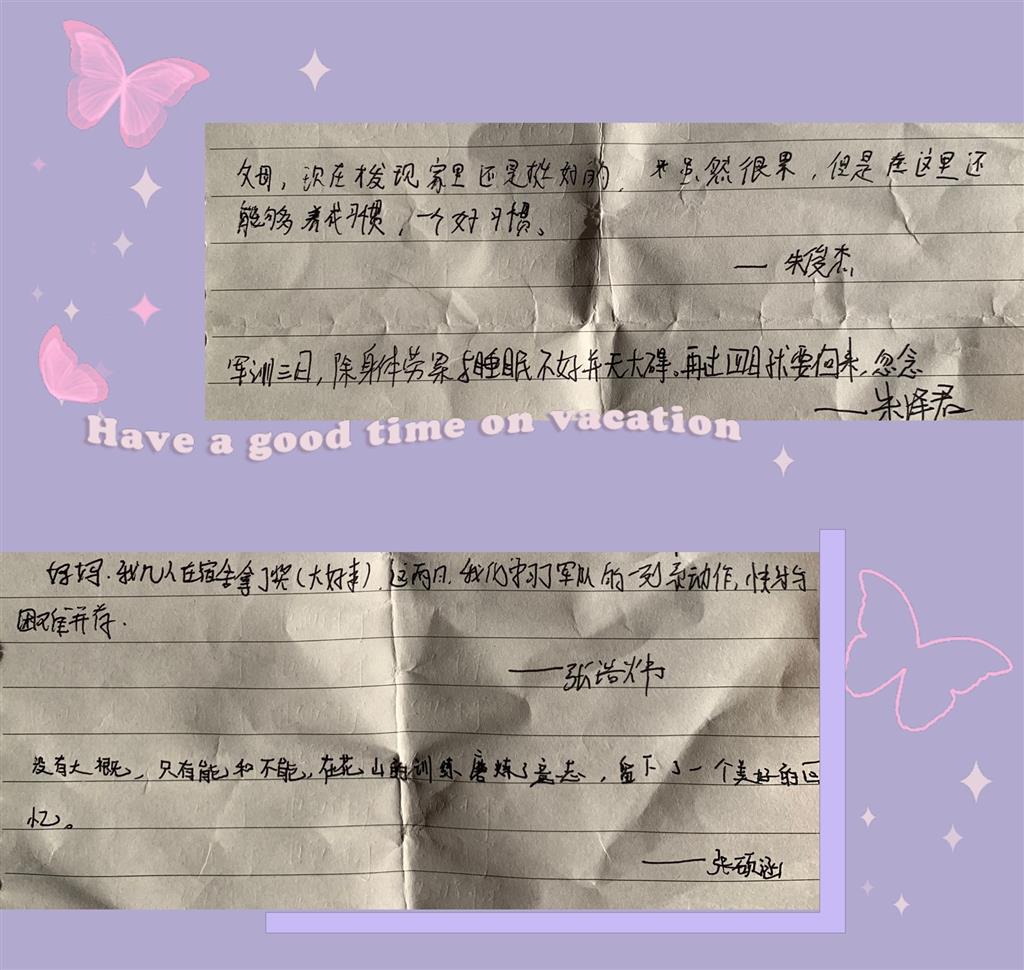 父母，现在发现家里还是挺好的，虽然很累，但是在这里还
能够养成习惯，一个好习惯。
——朱俊杰
军训三日，除身体劳累与睡眠不好并无大碍。再过四日我要回来，勿念
——朱泽君
Have a good time on vacation
妈妈.我几人在宿舍拿了奖(大好事).这两日.我们学习了军队的一列动作,快乐与
困难并存.
——张浩炜
没有大概，只有能和不能，在花山的训练磨炼了意志，留下了一个美好的回
忆。
——张硕涵